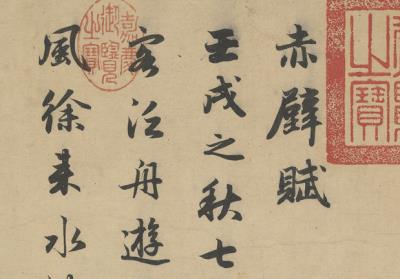 赤壁賦
壬戌之秋七
客泛舟遊
風徐来水
嘉慶御覽之寶
之寶